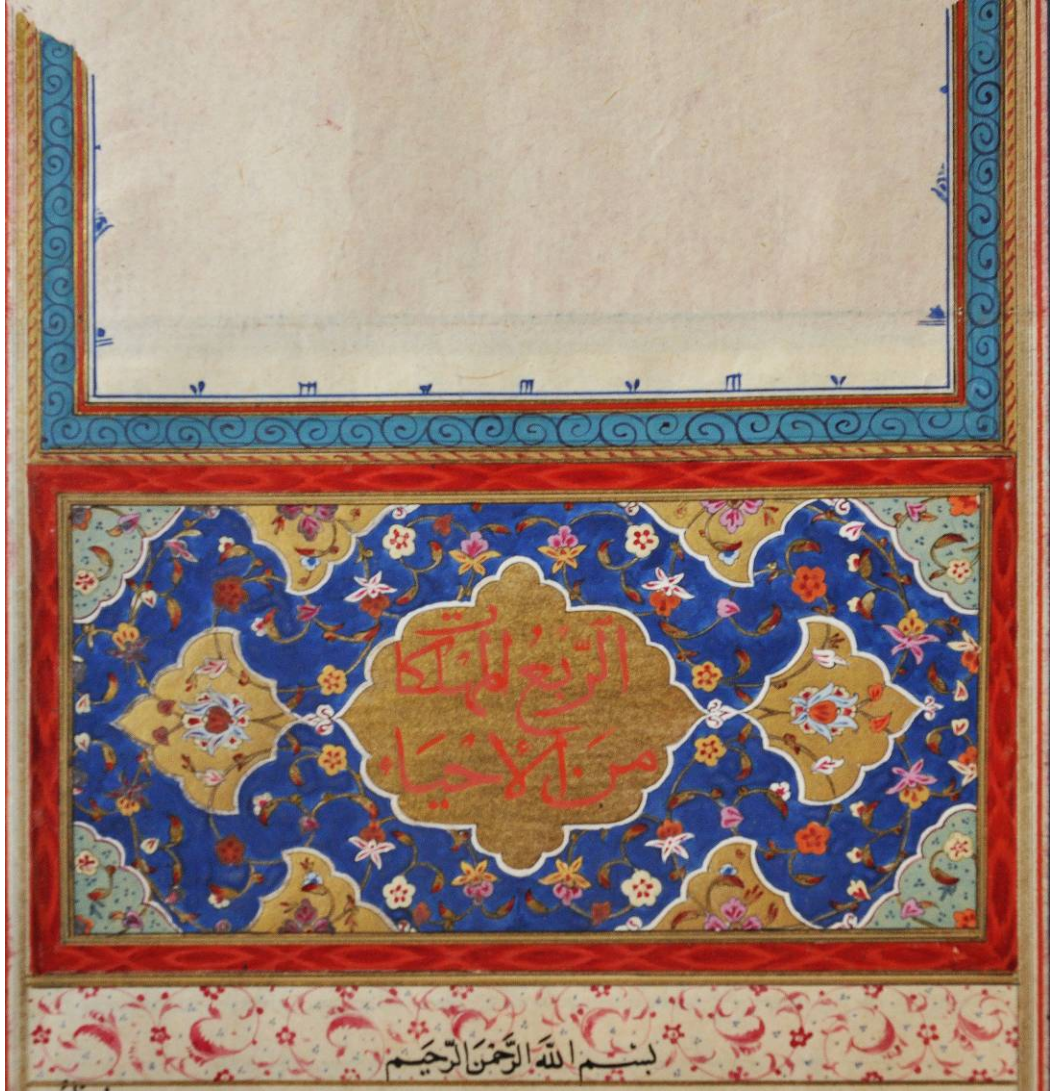 الرَّبْعُ المُهلكات
مِنَ الاحيَاء
بِسْمِ اللَّهِ الرَّحْمَنِ الرَّحِيمِ